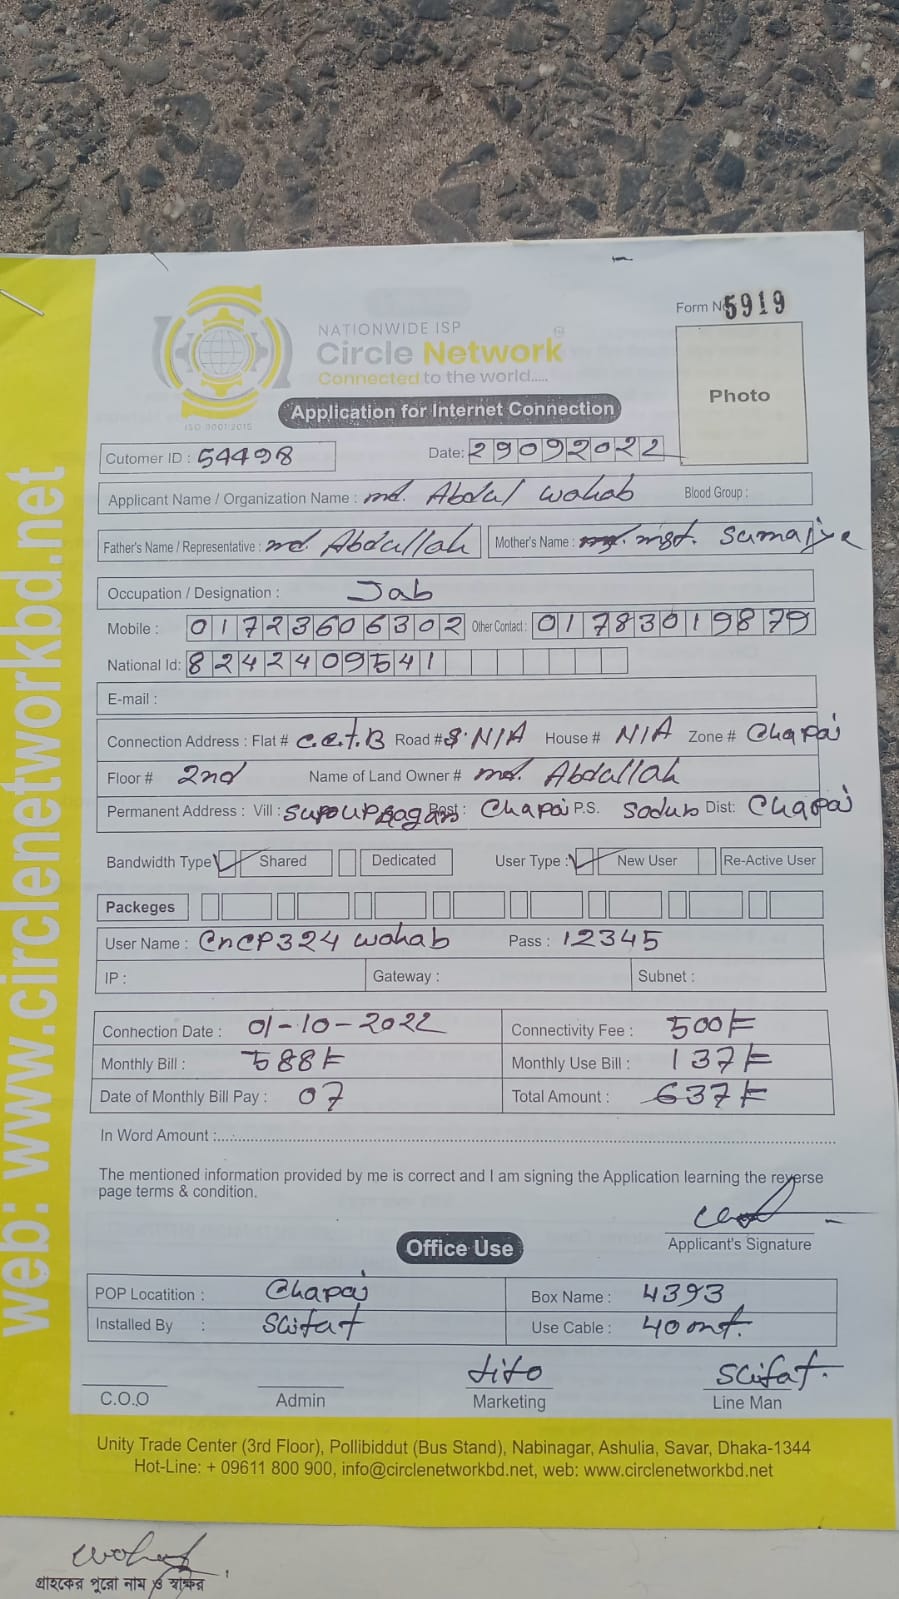 Form No 5919
NATIONWIDE ISP
Circle Network
Connected to the world.....
ISO 9001:2015
Photo
Application for Internet Connection
Cutomer ID : 54498 Date: 29092022
Applicant Name / Organization Name : md. Abdul wahab Blood Group :
Father's Name / Representative : md. Abdullah Mother's Name : mst. Sumaiya
Occupation / Designation : Job
Mobile : 01723606302 Other Contact : 01783019879
National Id: 8242409541
E-mail :
Connection Address : Flat # Road # N/A House # N/A Zone # Chapai
Floor # 2nd Name of Land Owner # md. Abdallah
Permanent Address : Vill : Post : Chapai P.S. Sodur Dist: Chapai
Bandwidth Type Shared Dedicated User Type : New User Re-Active User
Packeges
User Name : CnCP324 wohab Pass : 12345
IP : Gateway : Subnet :
Connection Date : 01-10-2022 Connectivity Fee : 500/=
Monthly Bill : 588/= Monthly Use Bill : 137/=
Date of Monthly Bill Pay : 07 Total Amount : 637/=
In Word Amount :
The mentioned information provided by me is correct and I am signing the Application learning the reverse
page terms & condition.
Applicant's Signature
Office Use
POP Locatition : Chapai Box Name : 4393
Installed By : Scifat Use Cable : 40 mt.
tito Scifat.
C.O.O Admin Marketing Line Man
Unity Trade Center (3rd Floor), Pollibiddut (Bus Stand), Nabinagar, Ashulia, Savar, Dhaka-1344
Hot-Line: + 09611 800 900, info@circlenetworkbd.net, web: www.circlenetworkbd.net
web: www.circlenetworkbd.net
wohab
গ্রাহকের পুরো নাম ও স্বাক্ষর